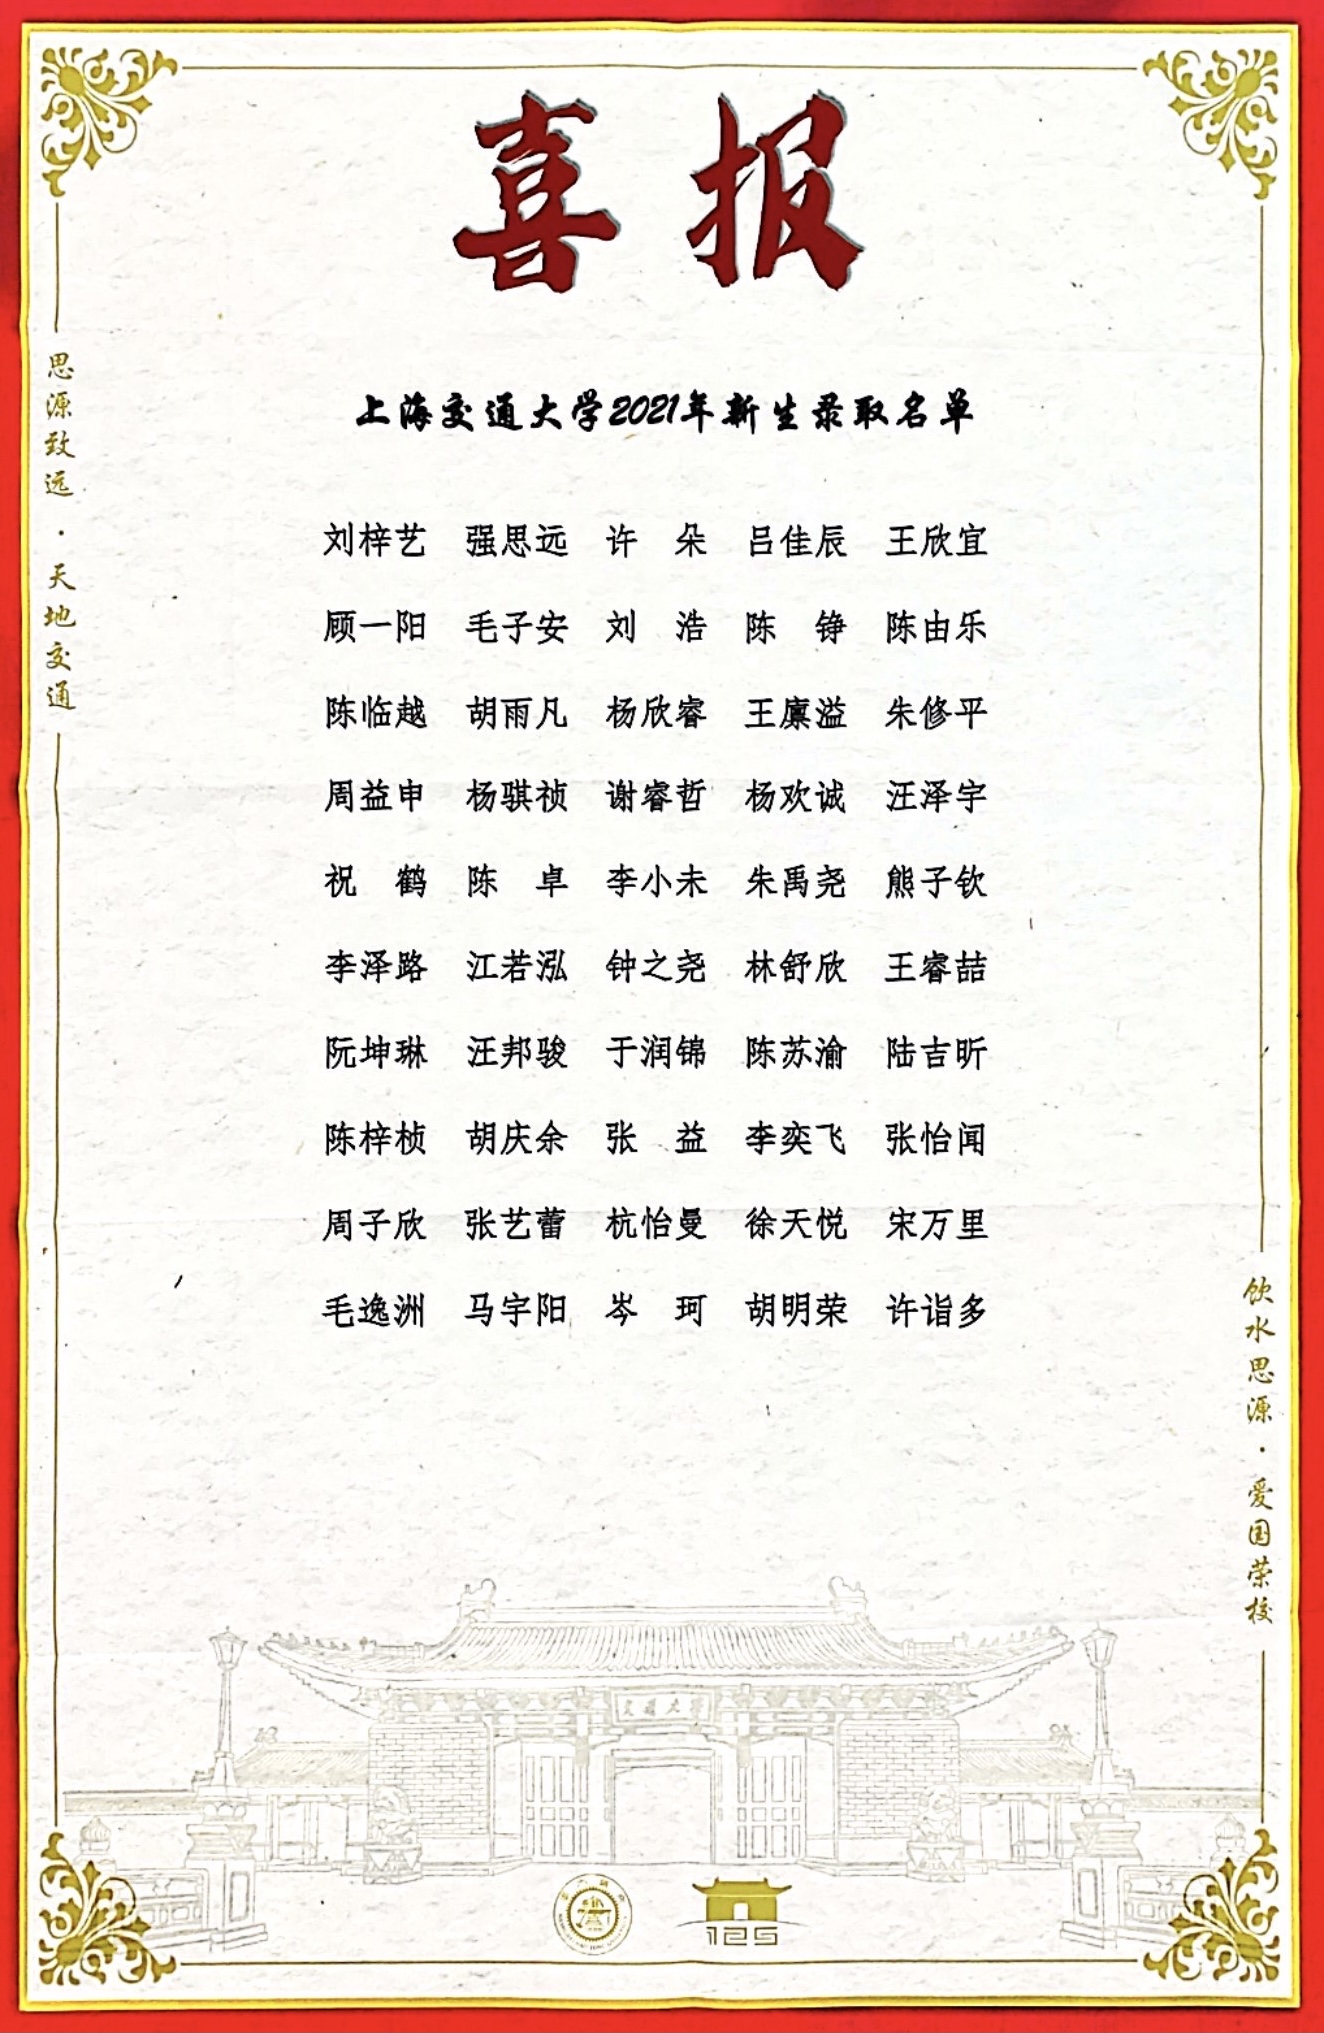 喜报
上海交通大学2021年新生录取名单
刘梓艺 强思远 许 朵 吕佳辰 王欣宜
顾一阳 毛子安 刘 浩 陈 铮 陈由乐
陈临越 胡雨凡 杨欣睿 王廪溢 朱修平
周益申 杨骐祯 谢睿哲 杨欢诚 汪泽宇
祝 鹤 陈 卓 李小未 朱禹尧 熊子钦
李泽路 江若泓 钟之尧 林舒欣 王睿喆
阮坤琳 汪邦骏 于润锦 陈苏渝 陆吉昕
陈梓桢 胡庆余 张 益 李奕飞 张怡闻
周子欣 张艺蕾 杭怡曼 徐天悦 宋万里
毛逸洲 马宇阳 岑 珂 胡明荣 许诣多
思源致远·天地交通
饮水思源·爱国荣校
交通大学
125